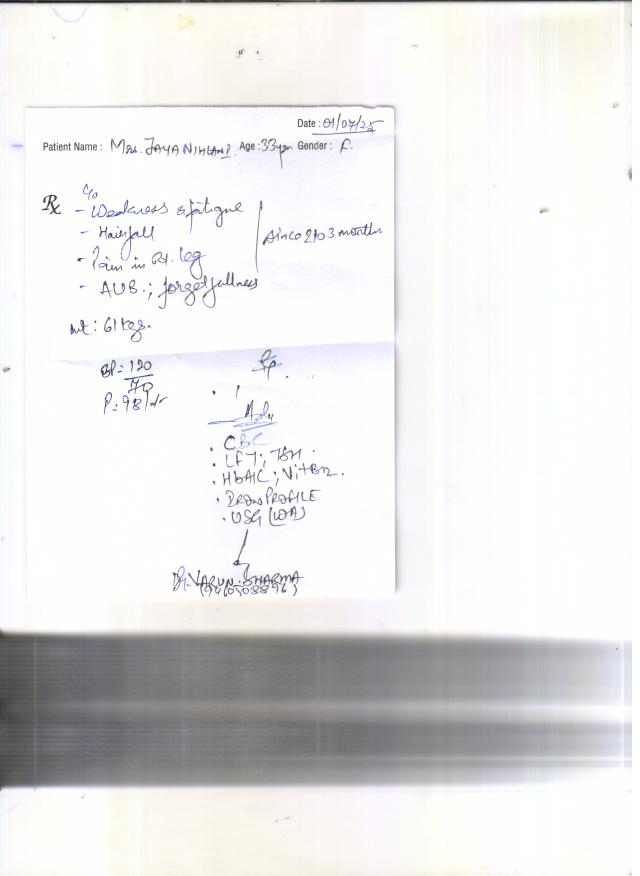 Date : 01/07/25
Patient Name : Mrs. JAYA NIHLANI. Age : 33yr. Gender : F.
Rx
c/o
- Weakness & fatigue
- Hairfall
- Pain in Rt. leg
- AUB.; forgetfullness
since 2 to 3 months
wt : 61 kgs.
BP = 120/70
P = 98/
Adv
. CBC
. LFT; TSH.
. HbA1C; Vit B12.
. IRON PROFILE
. USG (W/A)
Dr. VARUN SHARMA